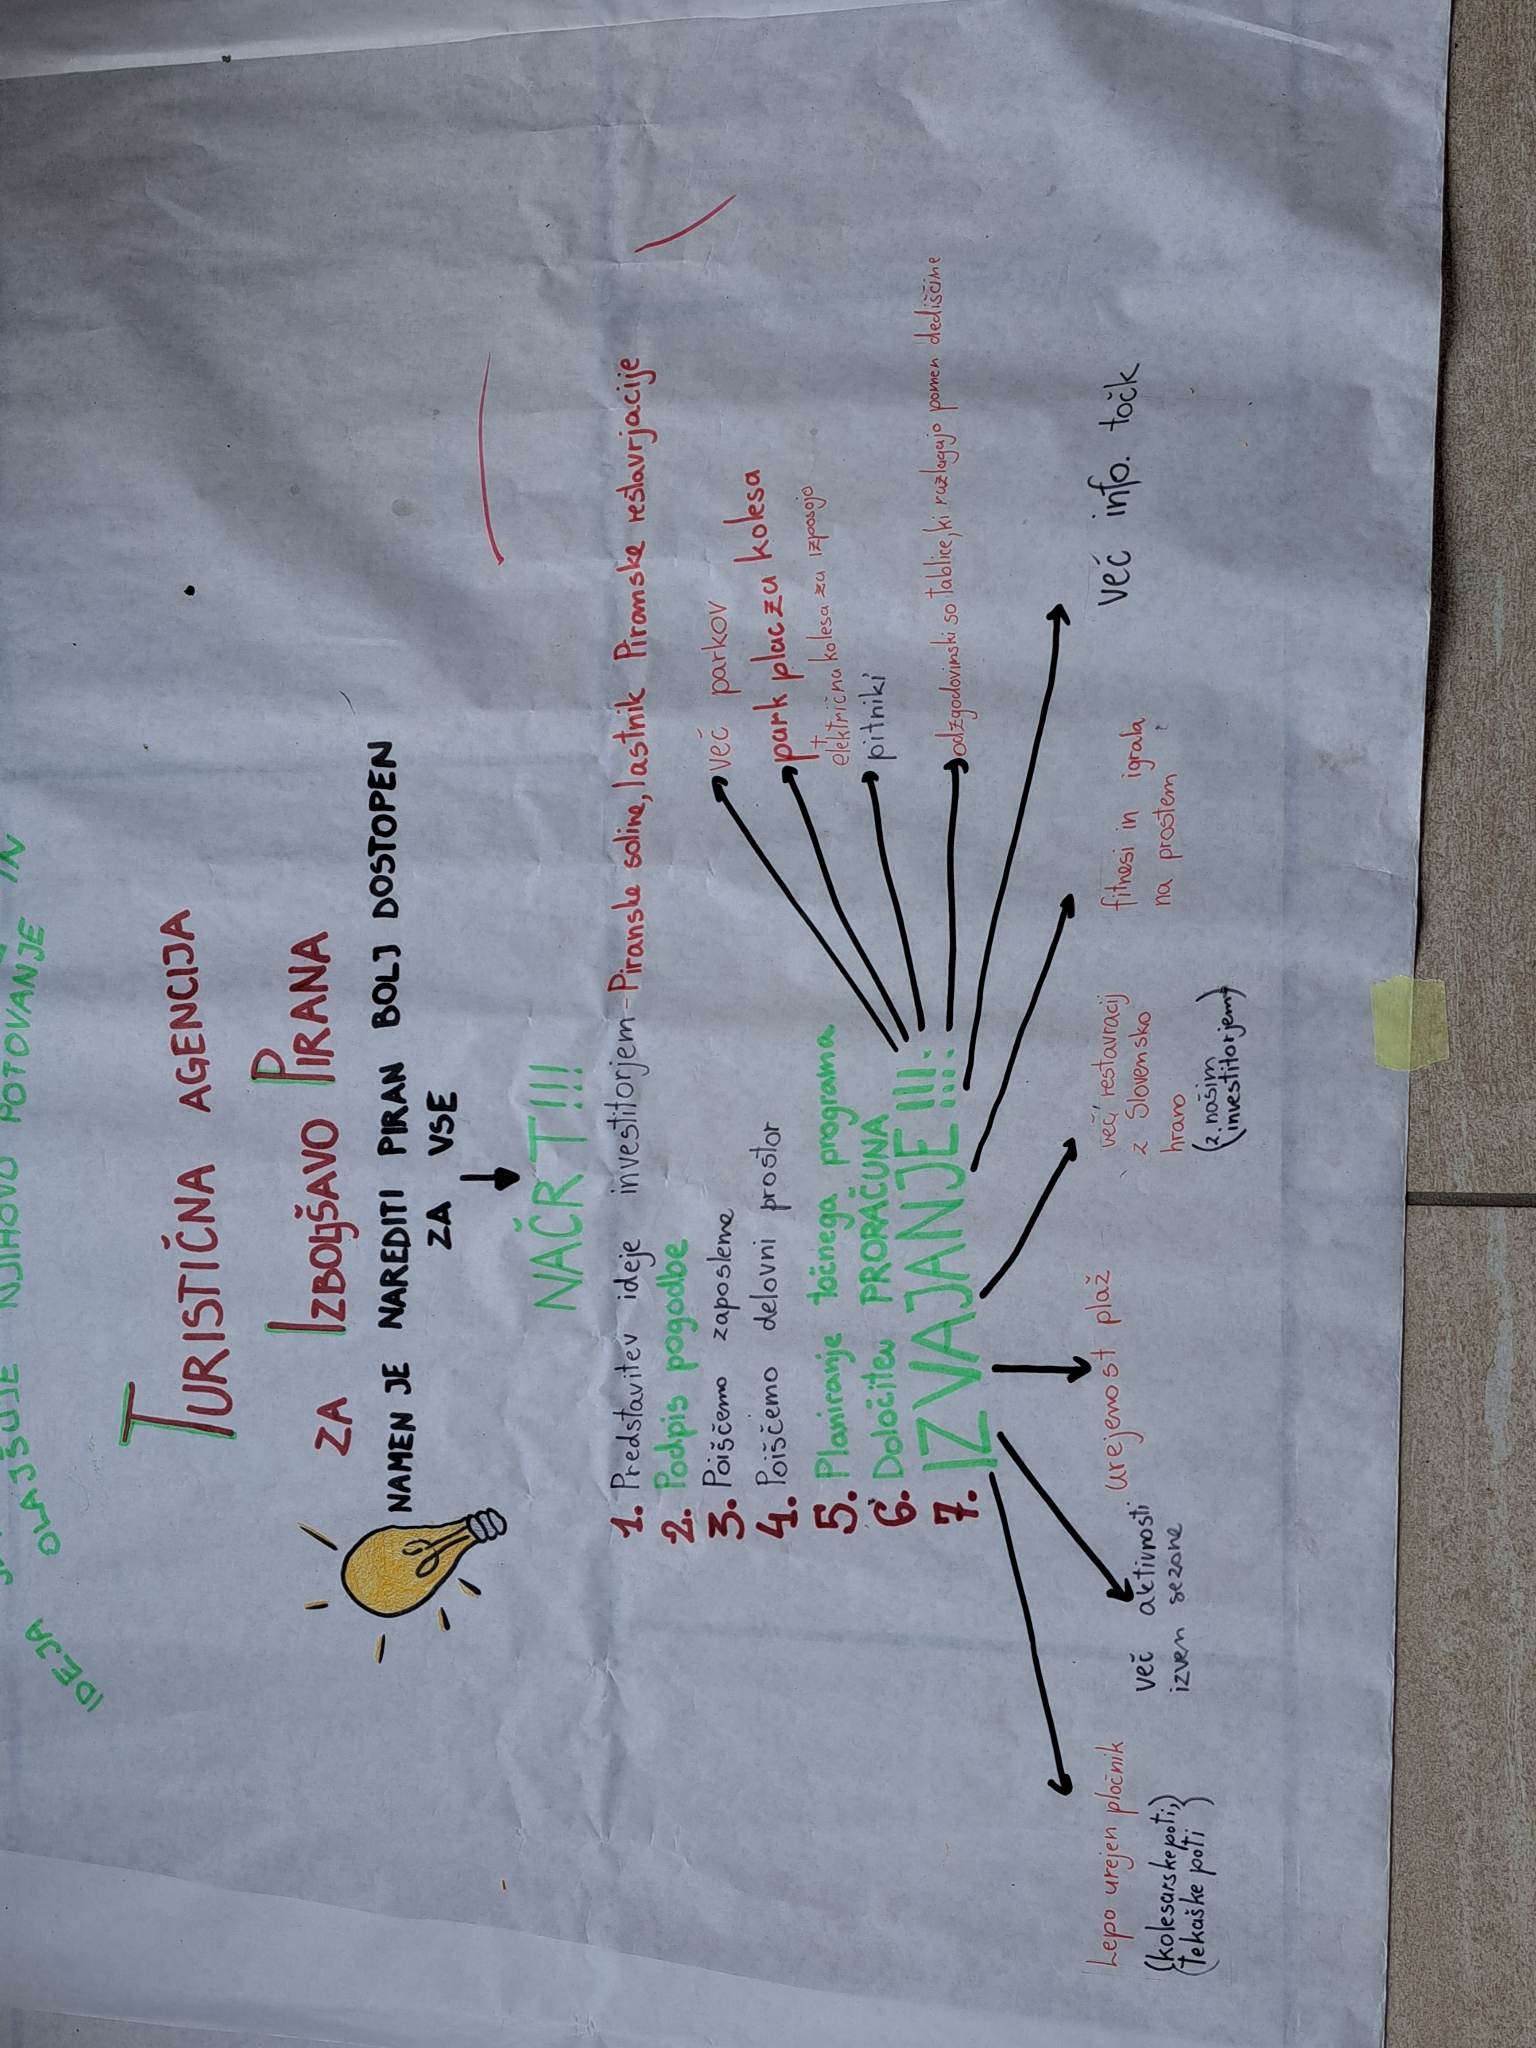 IDEJA OLAJŠUJE NJIHOVO POTOVANJE IN
TURISTIČNA AGENCIJA
ZA IZBOLJŠAVO PIRANA
NAMEN JE NAREDITI PIRAN BOLJ DOSTOPEN
ZA VSE
NAČRT!!!
1. Predstavitev ideje investitorjem-Piranske soline, lastnik Piranske restavrjacije
2. Podpis pogodbe
3. Poiščemo zaposlene
4. Poiščemo delovni prostor
5. Planiranje točnega programa
6. Določitev PRORAČUNA
7. IZVAJANJE!!!:
več parkov
park plac za kolesa
+
električna kolesa za izposojo
pitniki
odzgodovinski so tablice, ki razlagajo pomen dediščine
več info. točk
fitnesi in igrala
na prostem
več restavracij
z Slovensko
hrano
(z našim
investitorjem)
urejenost plaž
več aktivnosti
izven sezone
Lepo urejen pločnik
(kolesarske poti,
tekaške poti)